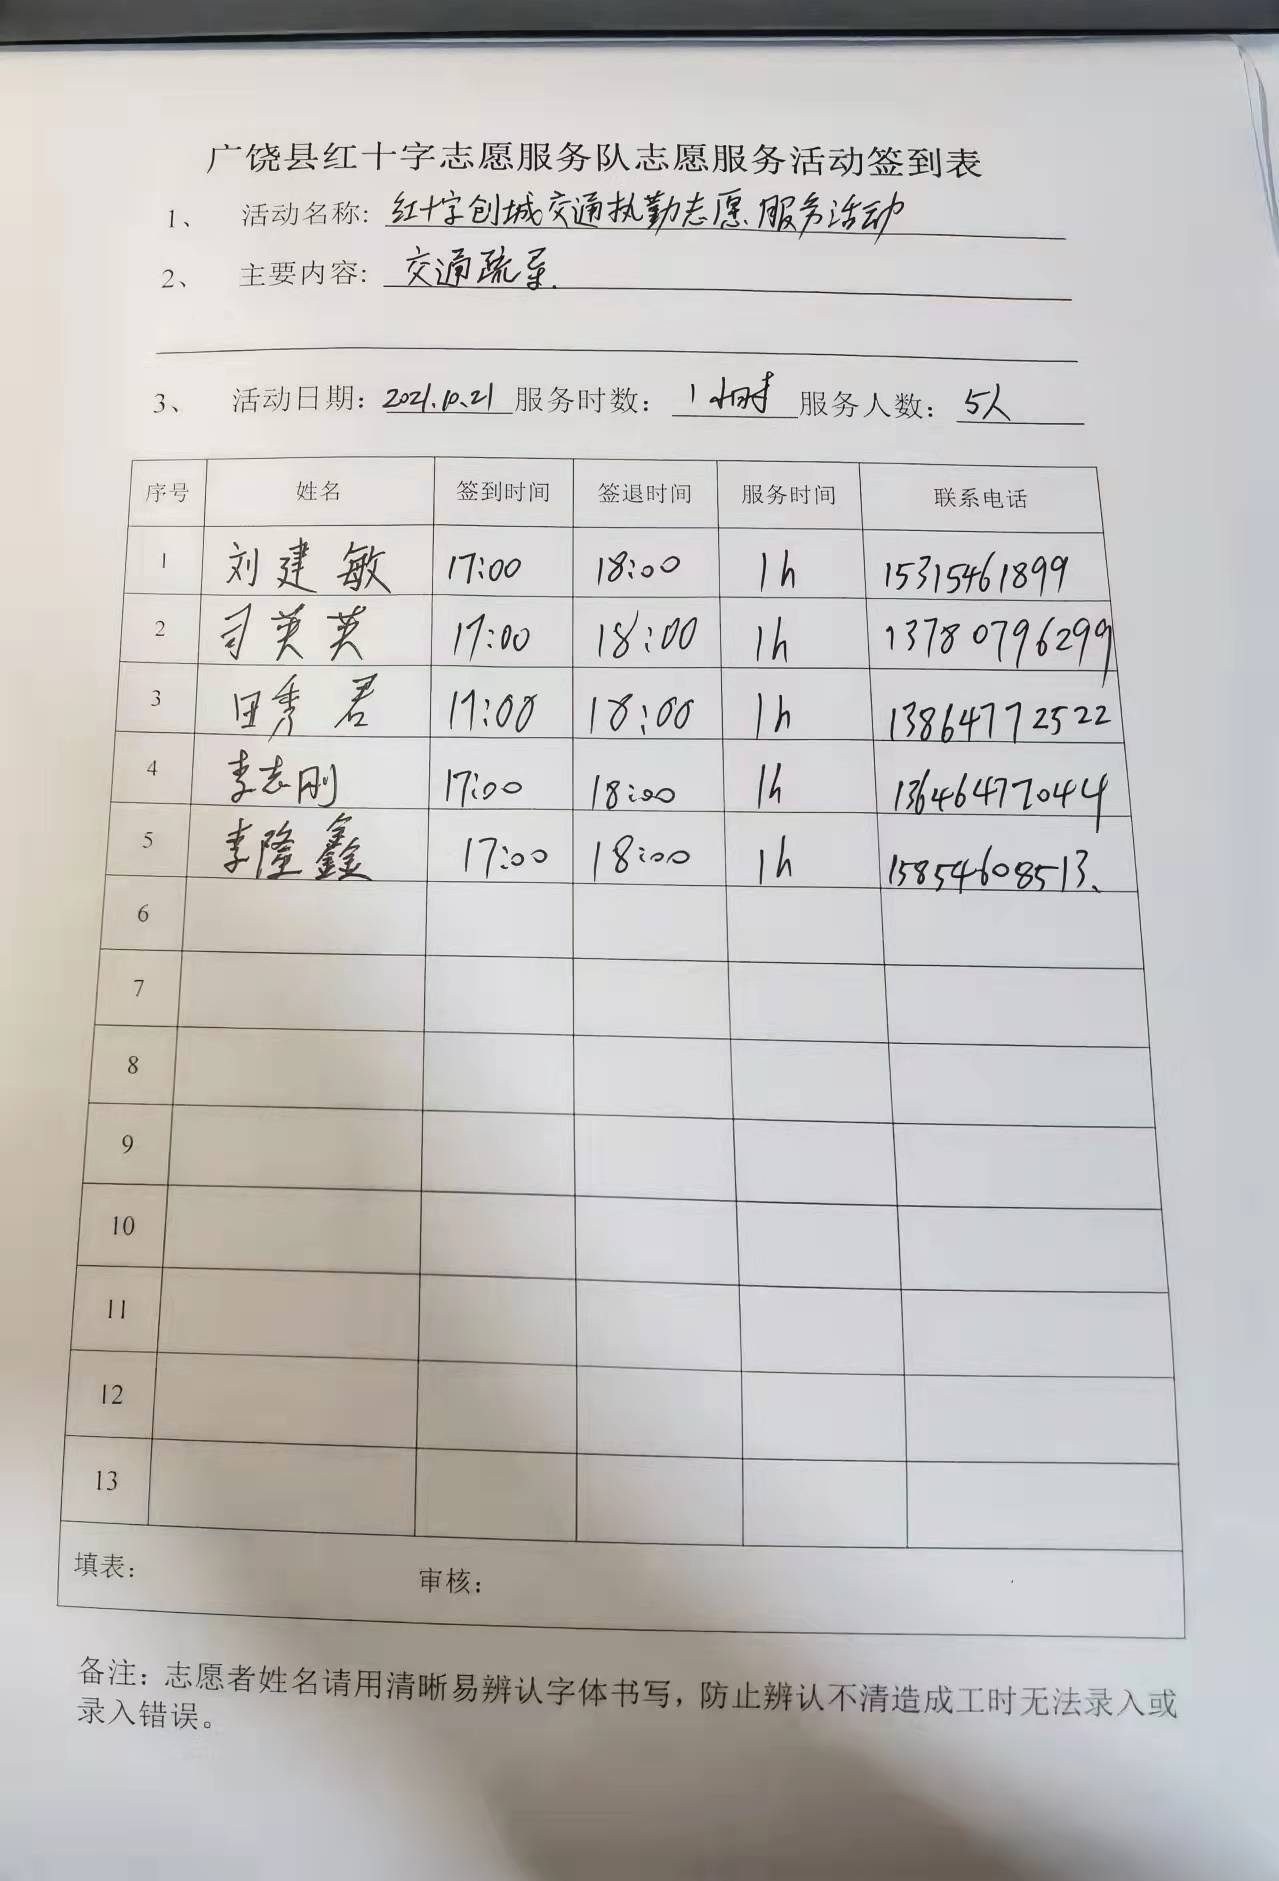 广饶县红十字志愿服务队志愿服务活动签到表
1、 活动名称: 红十字创城交通执勤志愿服务活动
2、 主要内容: 交通疏导.
3、 活动日期: 2021.10.21 服务时数: 1小时 服务人数: 5人
序号 姓名 签到时间 签退时间 服务时间 联系电话
1 刘建敏 17:00 18:00 1h 15315461899
2 司英英 17:00 18:00 1h 13780796299
3 田秀君 17:00 18:00 1h 13864772522
4 李志刚 17:00 18:00 1h 13646477044
5 李隆鑫 17:00 18:00 1h 15854608513、
6
7
8
9
10
11
12
13
填表: 审核:
备注: 志愿者姓名请用清晰易辨认字体书写，防止辨认不清造成工时无法录入或
录入错误。